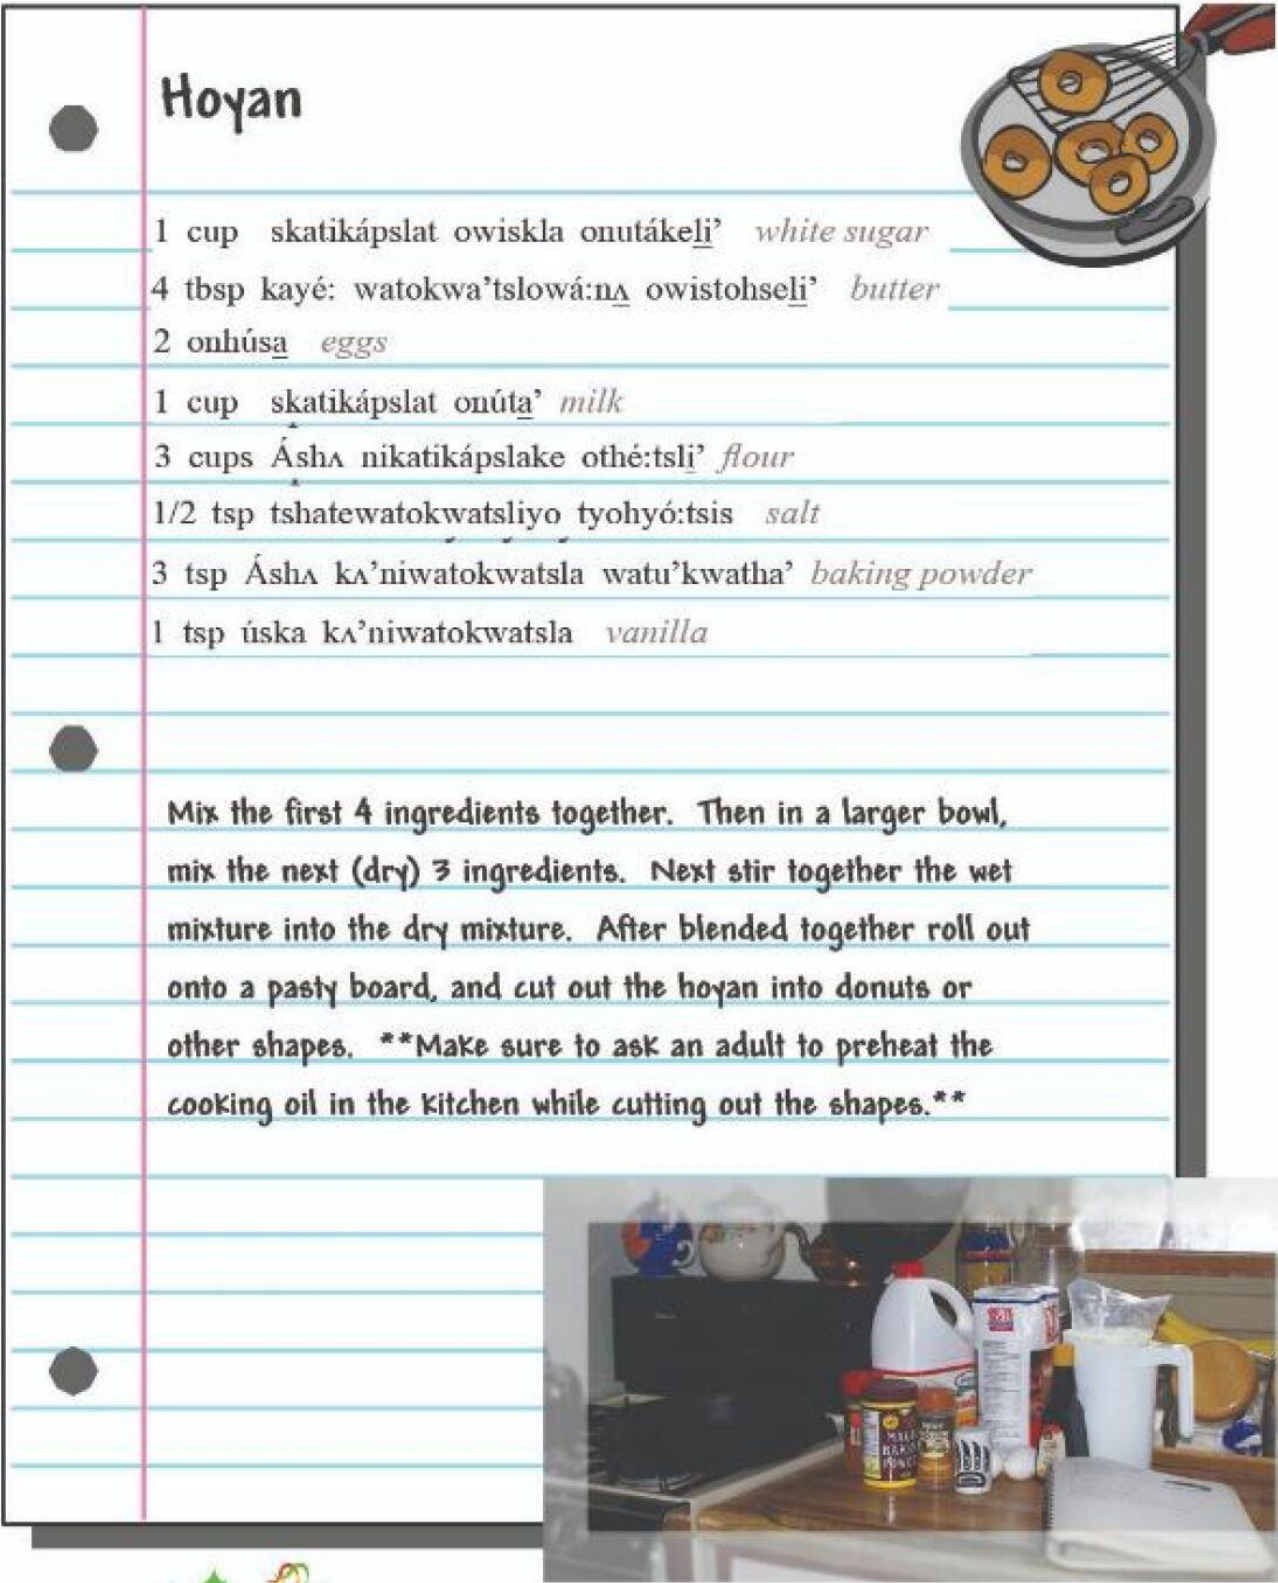 Hoyan
1 cup skatikápslat owiskla onutákeli’ white sugar
4 tbsp kayé: watokwa’tslowá:nʌ owistohseli’ butter
2 onhúsa eggs
1 cup skatikápslat onúta’ milk
3 cups Áshʌ nikatikápslake othé:tsli’ flour
1/2 tsp tshatewatokwatsliyo tyohyó:tsis salt
3 tsp Áshʌ kʌ’niwatokwatsla watu’kwatha’ baking powder
1 tsp úska kʌ’niwatokwatsla vanilla
Mix the first 4 ingredients together. Then in a larger bowl,
mix the next (dry) 3 ingredients. Next stir together the wet
mixture into the dry mixture. After blended together roll out
onto a pasty board, and cut out the hoyan into donuts or
other shapes. **Make sure to ask an adult to preheat the
cooking oil in the kitchen while cutting out the shapes.**